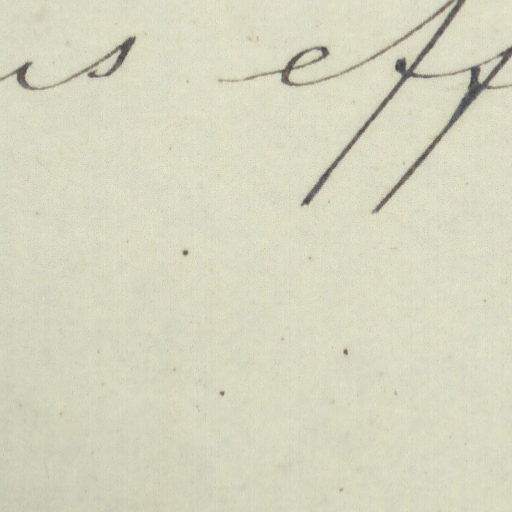 us eff